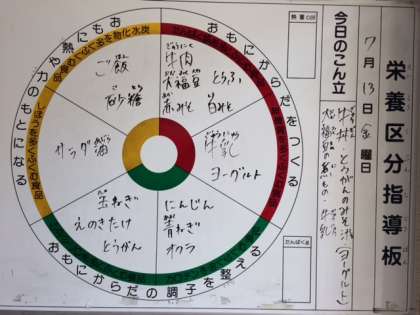 栄養区分指導板
7月13日(金)曜日
今日のこん立
牛丼・とうがんのみそ汁(ヨーグルト)
大福豆の煮もの・牛乳
熱量
たんぱく質
おもにからだをつくる
牛肉
大福豆 とうふ
赤みそ 白みそ
牛乳
ヨーグルト
おもにからだの調子を整える
にんじん
青ねぎ
オクラ
玉ねぎ
えのきたけ
とうがん
おもに熱や力のもとになる
炭水化物を多くふくむ食品
ご飯
砂糖
しぼうを多くふくむ食品
サラダ油